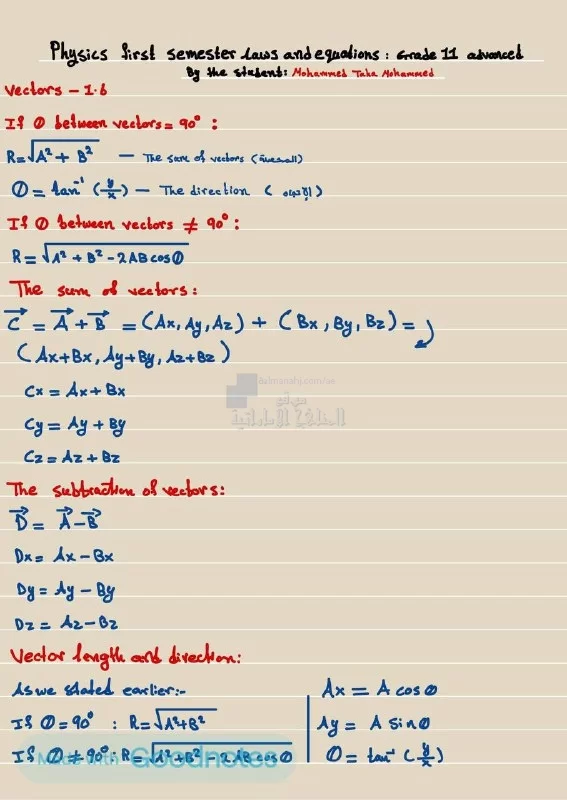 Physics first semester laws and equations: Grade 11 advanced
By the student: Mohammed Taha Mohammed
Vectors - 1.6
If θ between vectors = 90° :
R = √A² + B² — The sum of vectors (المحصلة)
θ = tan⁻¹ (y/x) — The direction (الاتجاه)
If θ between vectors ≠ 90° :
R = √A² + B² - 2AB cos θ
The sum of vectors:
C⃗ = A⃗ + B⃗ = (Ax, Ay, Az) + (Bx, By, Bz) =
(Ax+Bx, Ay+By, Az+Bz)
Cx = Ax + Bx
almanahj.com/ae
موقع
المناهج الإماراتية
Cy = Ay + By
Cz = Az + Bz
The subtraction of vectors:
D⃗ = A⃗ - B⃗
Dx = Ax - Bx
Dy = Ay - By
Dz = Az - Bz
Vector length and direction:
As we stated earlier:-
If θ = 90° : R = √A²+B²
If θ ≠ 90° : R = √A²+B²-2AB cos θ
Ax = A cos θ
Ay = A sin θ
θ = tan⁻¹ (y/x)
Made with Goodnotes